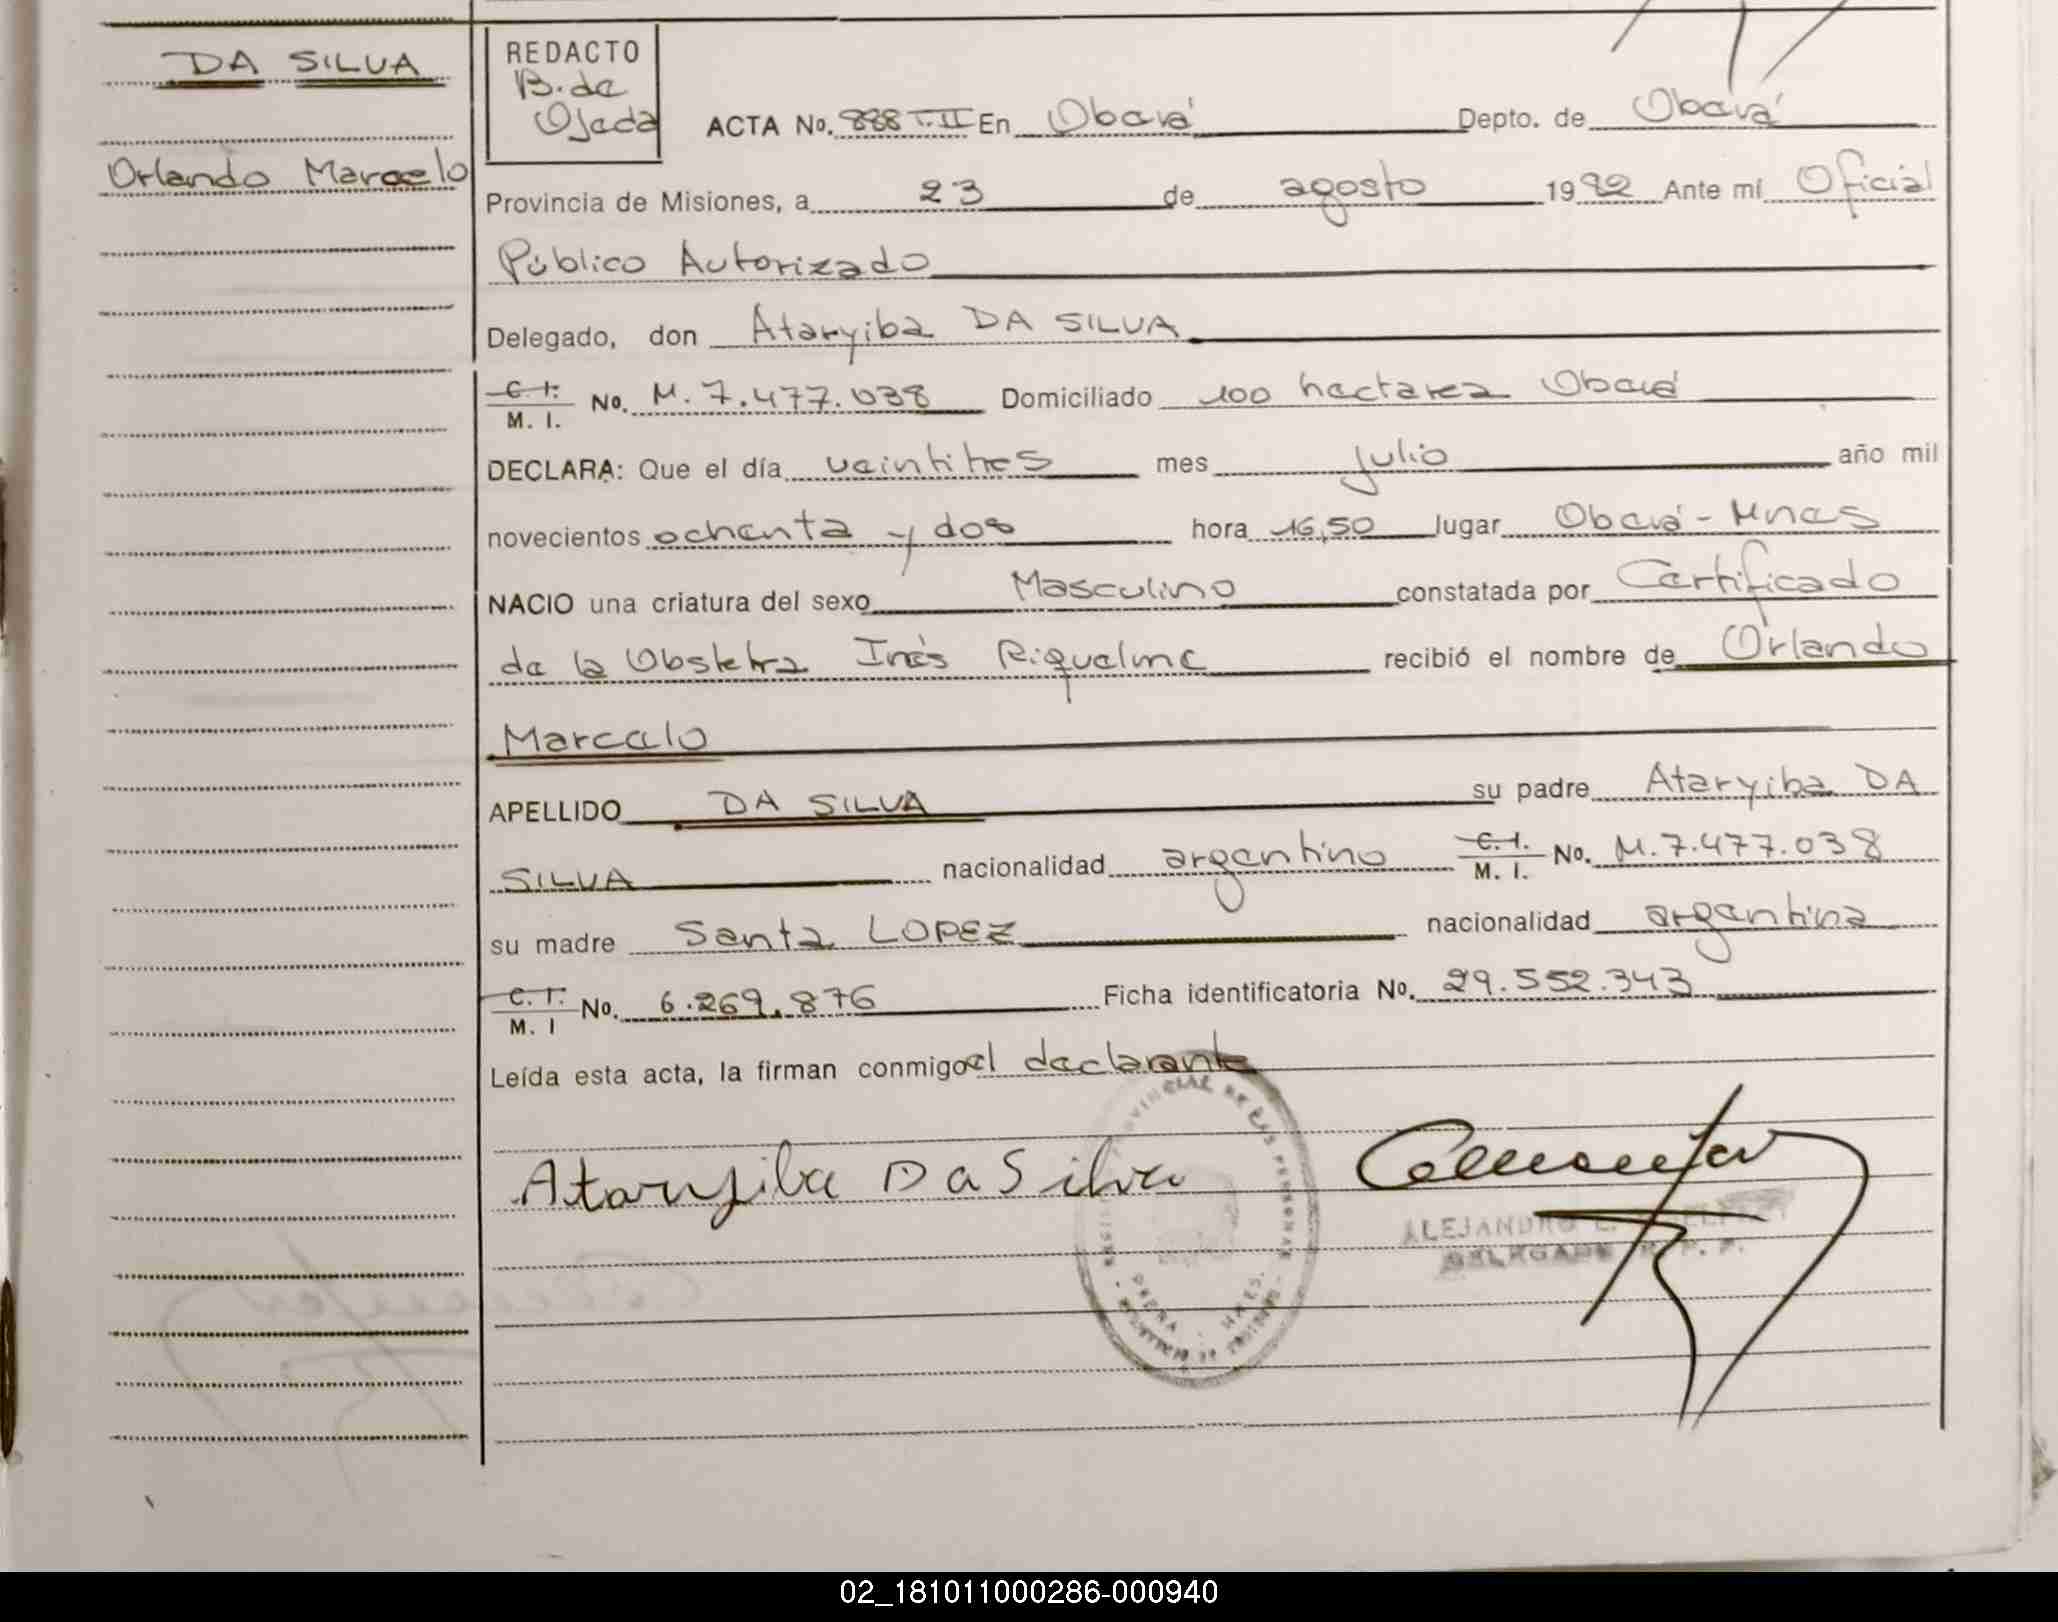 DA SILVA
Orlando Marcelo
REDACTO
B. de
Ojeda
ACTA No. 888 T. II En Oberá Depto. de Oberá
Provincia de Misiones, a 23 de agosto 1982 Ante mí Oficial
Público Autorizado
Delegado, don Ataryiba DA SILVA
C. I.
M. I. No. M. 7.477.038 Domiciliado 100 hectarea Oberá
DECLARA: Que el día veintitres mes julio año mil
novecientos ochenta y dos hora 16,50 lugar Oberá - Mnes
NACIO una criatura del sexo Masculino constatada por Certificado
de la Obstetra Inés Riquelme recibió el nombre de Orlando
Marcelo
APELLIDO DA SILVA su padre Ataryiba DA
SILVA nacionalidad argentino C. I. M. I. No. M. 7.477.038
su madre Santa LOPEZ nacionalidad argentina
C. I.
M. I No. 6.269.876 Ficha identificatoria No. 29.552.343
Leída esta acta, la firman conmigo el declarante
Ataryiba Da Silva
PROVINCIAL DE LAS PERSONAS
ALEJANDRO
DELEGADO R. P. P.
02_181011000286-000940